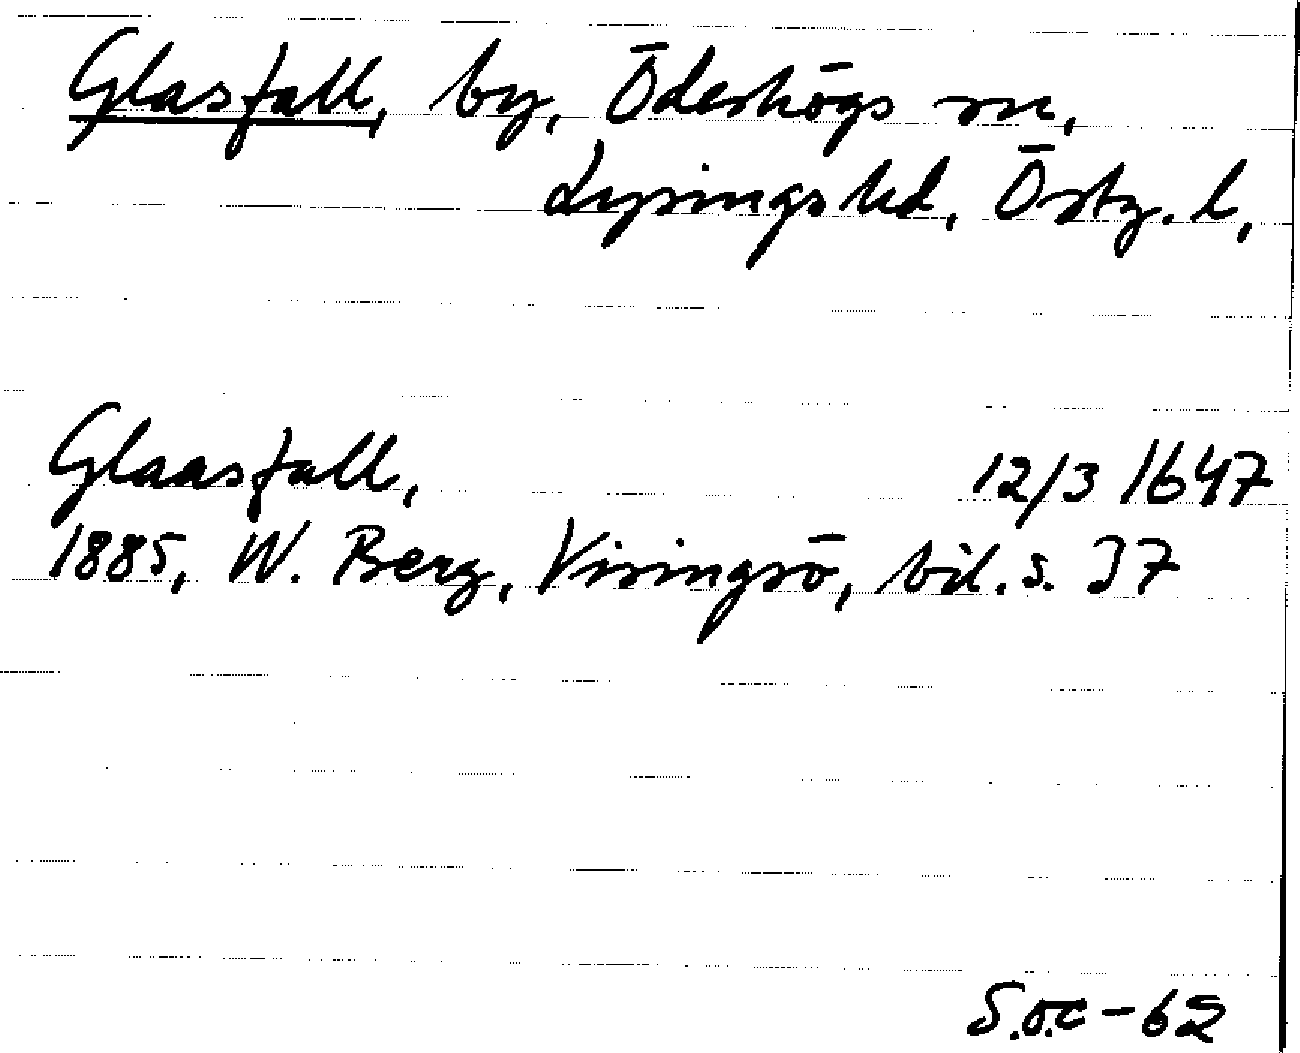 Glasfall, by, Ödeshögs sn,
Lysings hd, Östg. l,
Glaasfall, 12/3 1647
1885, W. Berg, Visingsö, bil. s. 37
S.O.C-62